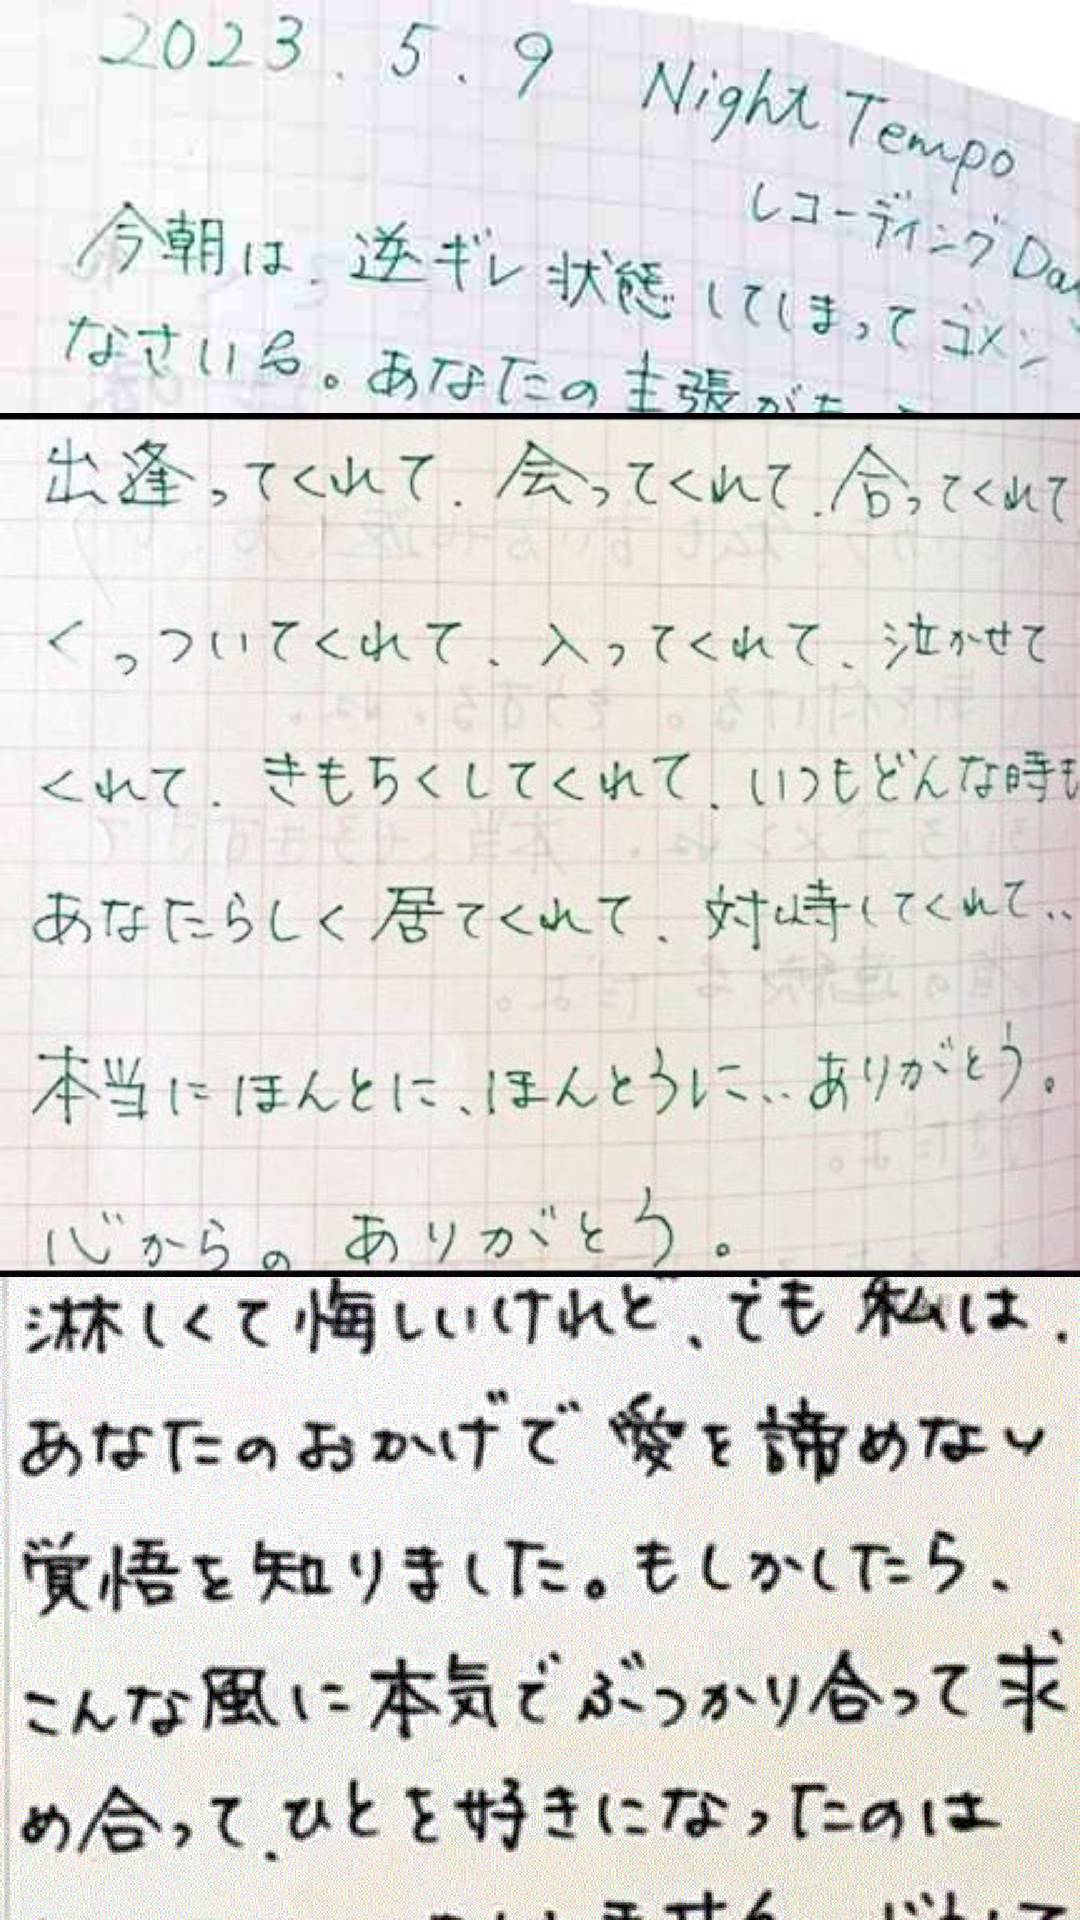 2023.5.9 Night Tempo
レコーディング Day
今朝は、逆ギレ状態してしまってゴメン
なさいね。あなたの主張が
出逢ってくれて、会ってくれて、合ってくれて
くっついてくれて、入ってくれて、泣かせて
くれて、きもちくしてくれて、いつもどんな時も
あなたらしく居てくれて、対峙してくれて、、
本当にほんとに、ほんとうに、、ありがとう。
心からの ありがとう。
淋しくて悔しいけれど、でも私は、
あなたのおかげで愛を諦めない
覚悟を知りました。もしかしたら、
こんな風に本気でぶつかり合って求
め合って、ひとを好きになったのは